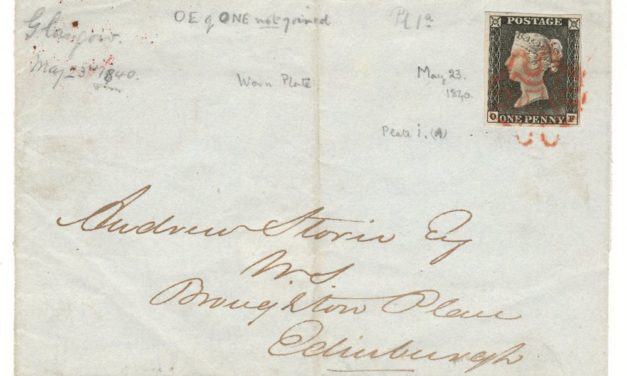 OE of ONE not joined
Pl 1a
Glasgow.
May 23rd 1840.
Worn Plate
May 23.
1840.
Plate 1. (A)
POSTAGE
ONE PENNY
Andrew Storie Esq
WS
Broughton Place
Edinburgh